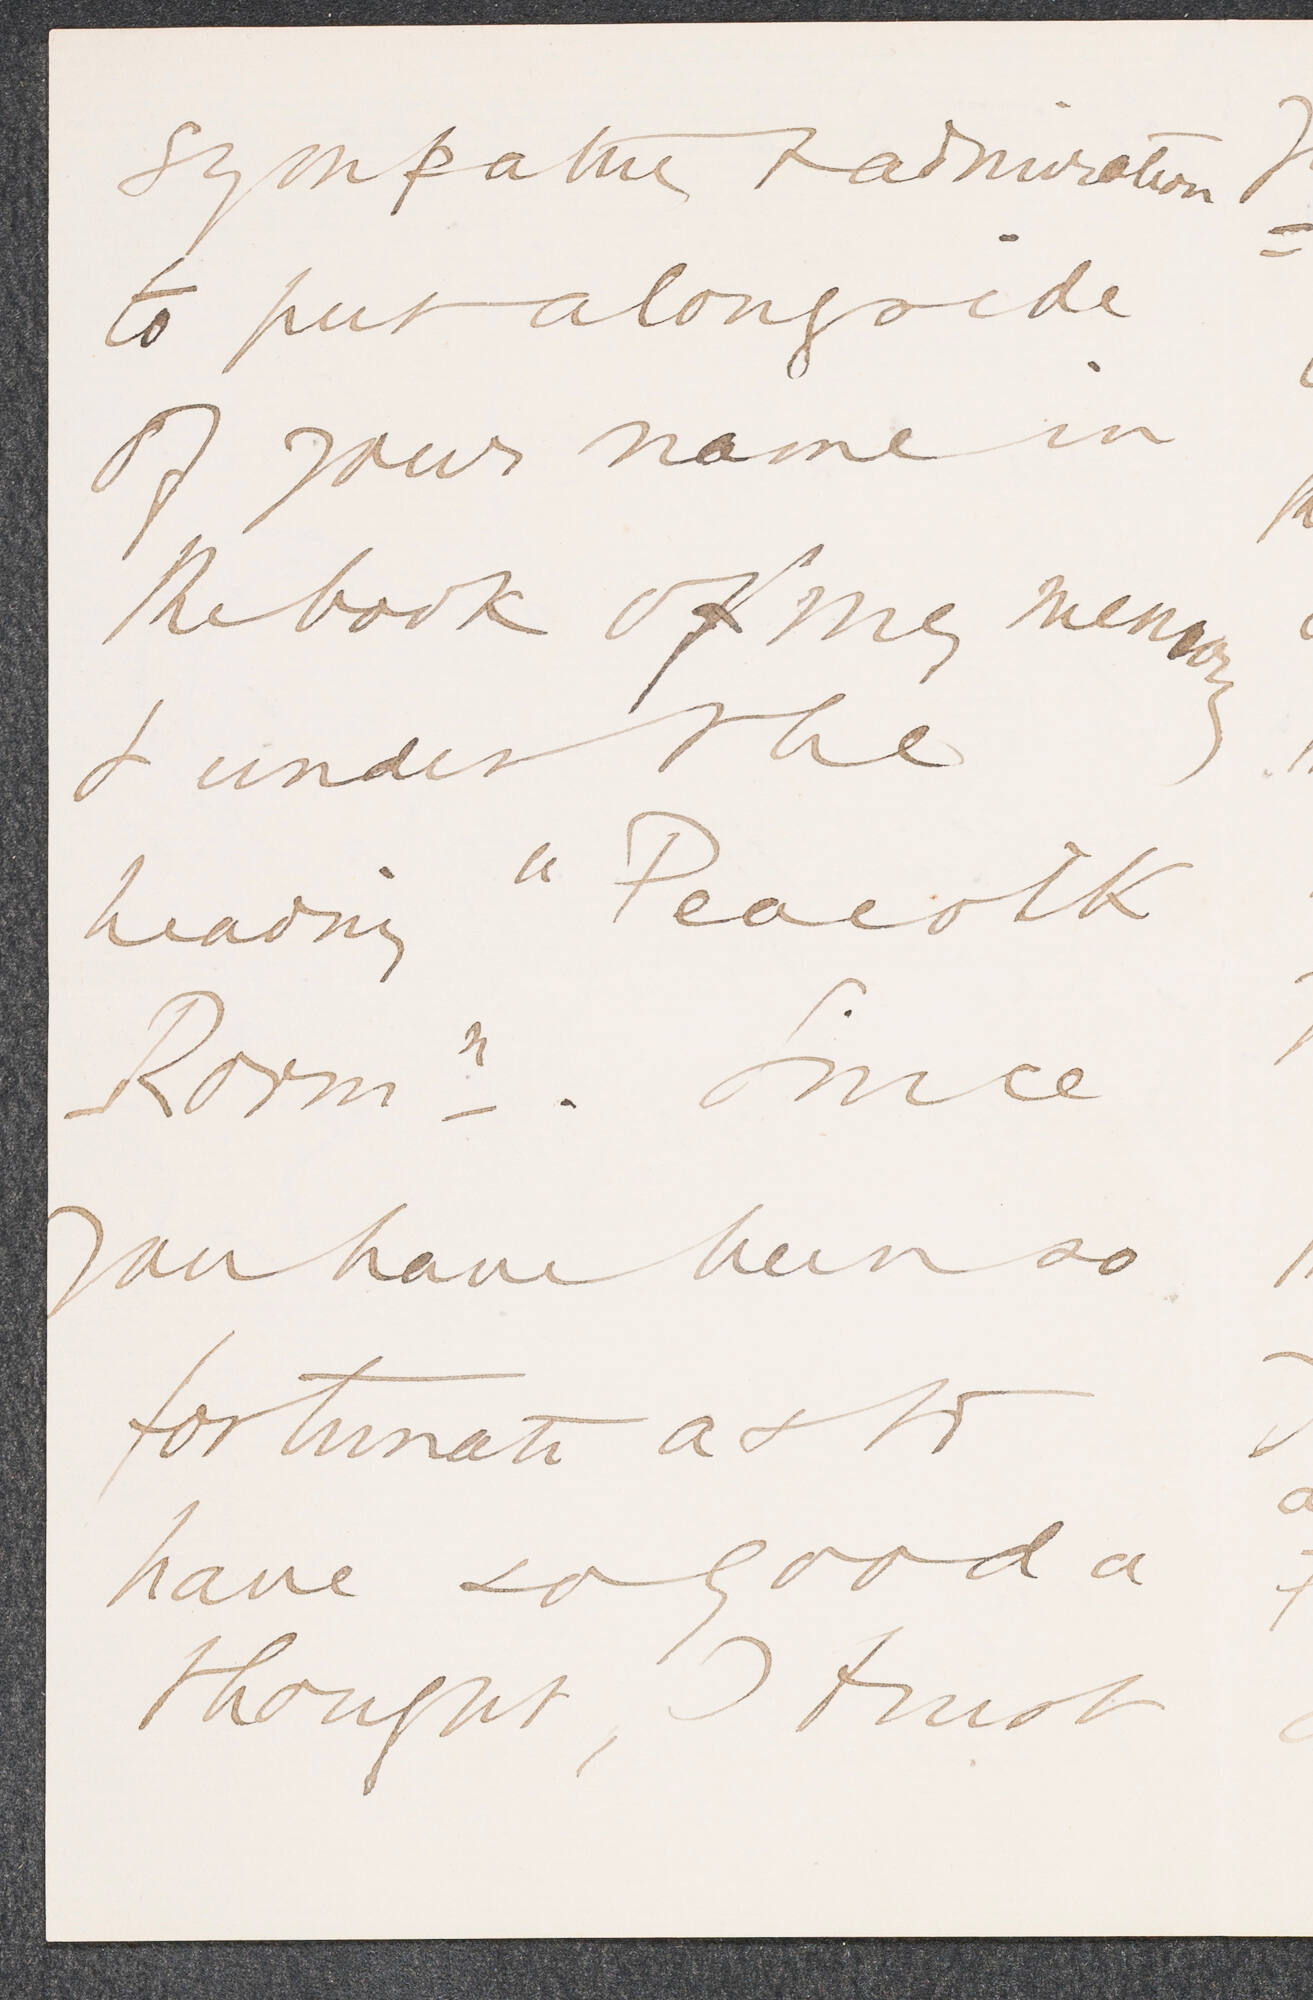 sympathy & admiration
to put alongside
of your name in
the book of my memory
& under the
heading "Peacock
Room". Since
you have been so
fortunate as to
have so good a
thought, I trust